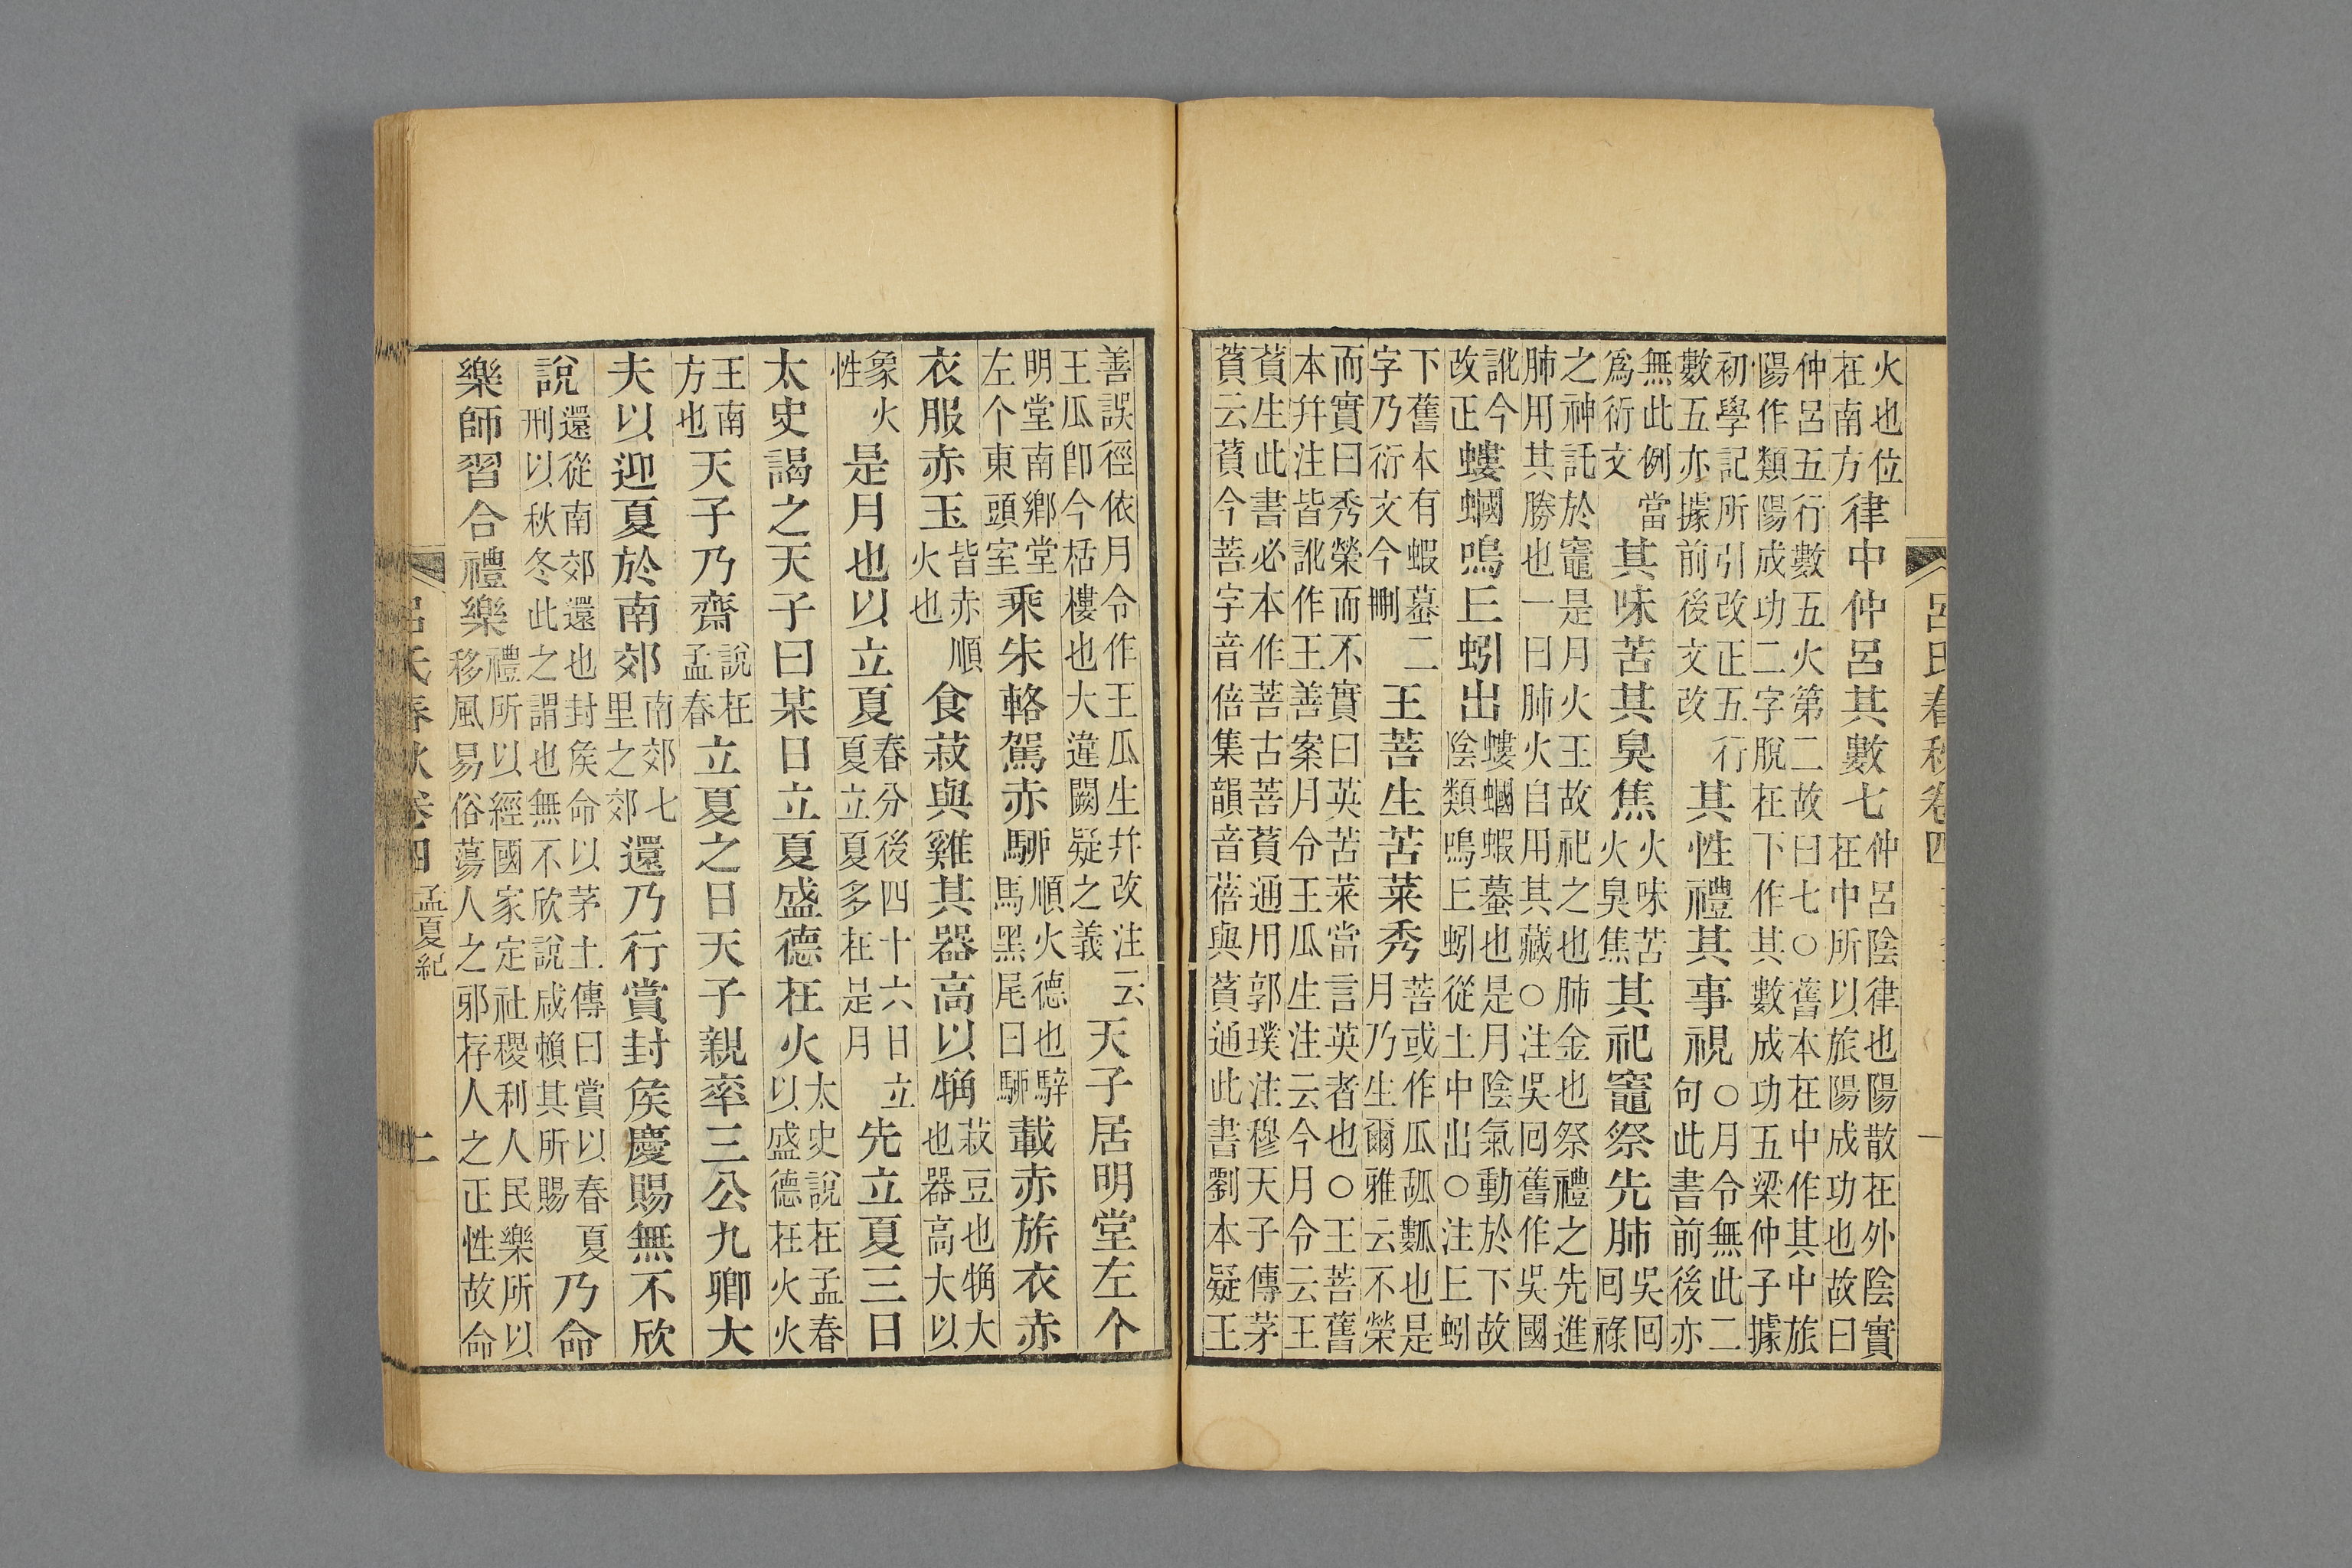 呂氏春秋卷四
火也位在南方律中仲呂其數七仲呂陰律也陽散在外陰實在中所以旅陽成功也故曰
仲呂五行數五火第二故曰七○舊本在中作其中旅
陽作類陽成功二字脫在下作其數成功五梁仲子據
初學記所引改正五行數五亦據前後文改其性禮其事視○月令無此二句此書前後亦
無此例當爲衍文其味苦其臭焦火味苦火臭焦其祀竈祭先肺吳回回祿
之神託於竈是月火王故祀之也肺金也祭禮之先進
肺用其勝也一曰肺火自用其藏○注吳回舊作吳國
訛今改正螻蟈鳴丘蚓出螻蟈蝦蟇也是月陰氣動於下故陰類鳴丘蚓從土中出○注丘蚓
下舊本有蝦蟇二字乃衍文今刪王菩生苦菜秀菩或作瓜瓠瓤也是月乃生爾雅云不榮
而實曰秀榮而不實曰英苦菜當言英者也○王菩舊
本幷注皆訛作王善案月令王瓜生注云今月令云王
萯生此書必本作菩古菩萯通用郭璞注穆天子傳茅
萯云萯今菩字音倍集韻音蓓與萯通此書劉本疑王
善誤徑依月令作王瓜生幷改注云王瓜卽今栝樓也大違闕疑之義天子居明堂左个
明堂南鄉堂左个東頭室乘朱輅駕赤駵順火德也騂馬黑尾曰駵載赤旂衣赤
衣服赤玉皆赤順火也食菽與雞其器高以觕菽豆也觕大也器高大以
象火性是月也以立夏春分後四十六日立夏立夏多在是月先立夏三日
太史謁之天子曰某日立夏盛德在火太史說在孟春以盛德在火火
王南方也天子乃齋說在孟春立夏之日天子親率三公九卿大
夫以迎夏於南郊南郊七里之郊還乃行賞封侯慶賜無不欣
說還從南郊還也封侯命以茅土傳曰賞以春夏刑以秋冬此之謂也無不欣說咸賴其所賜乃命
樂師習合禮樂禮所以經國家定社稷利人民樂所以移風易俗蕩人之邪存人之正性故命
呂氏春秋卷四 孟夏紀 二